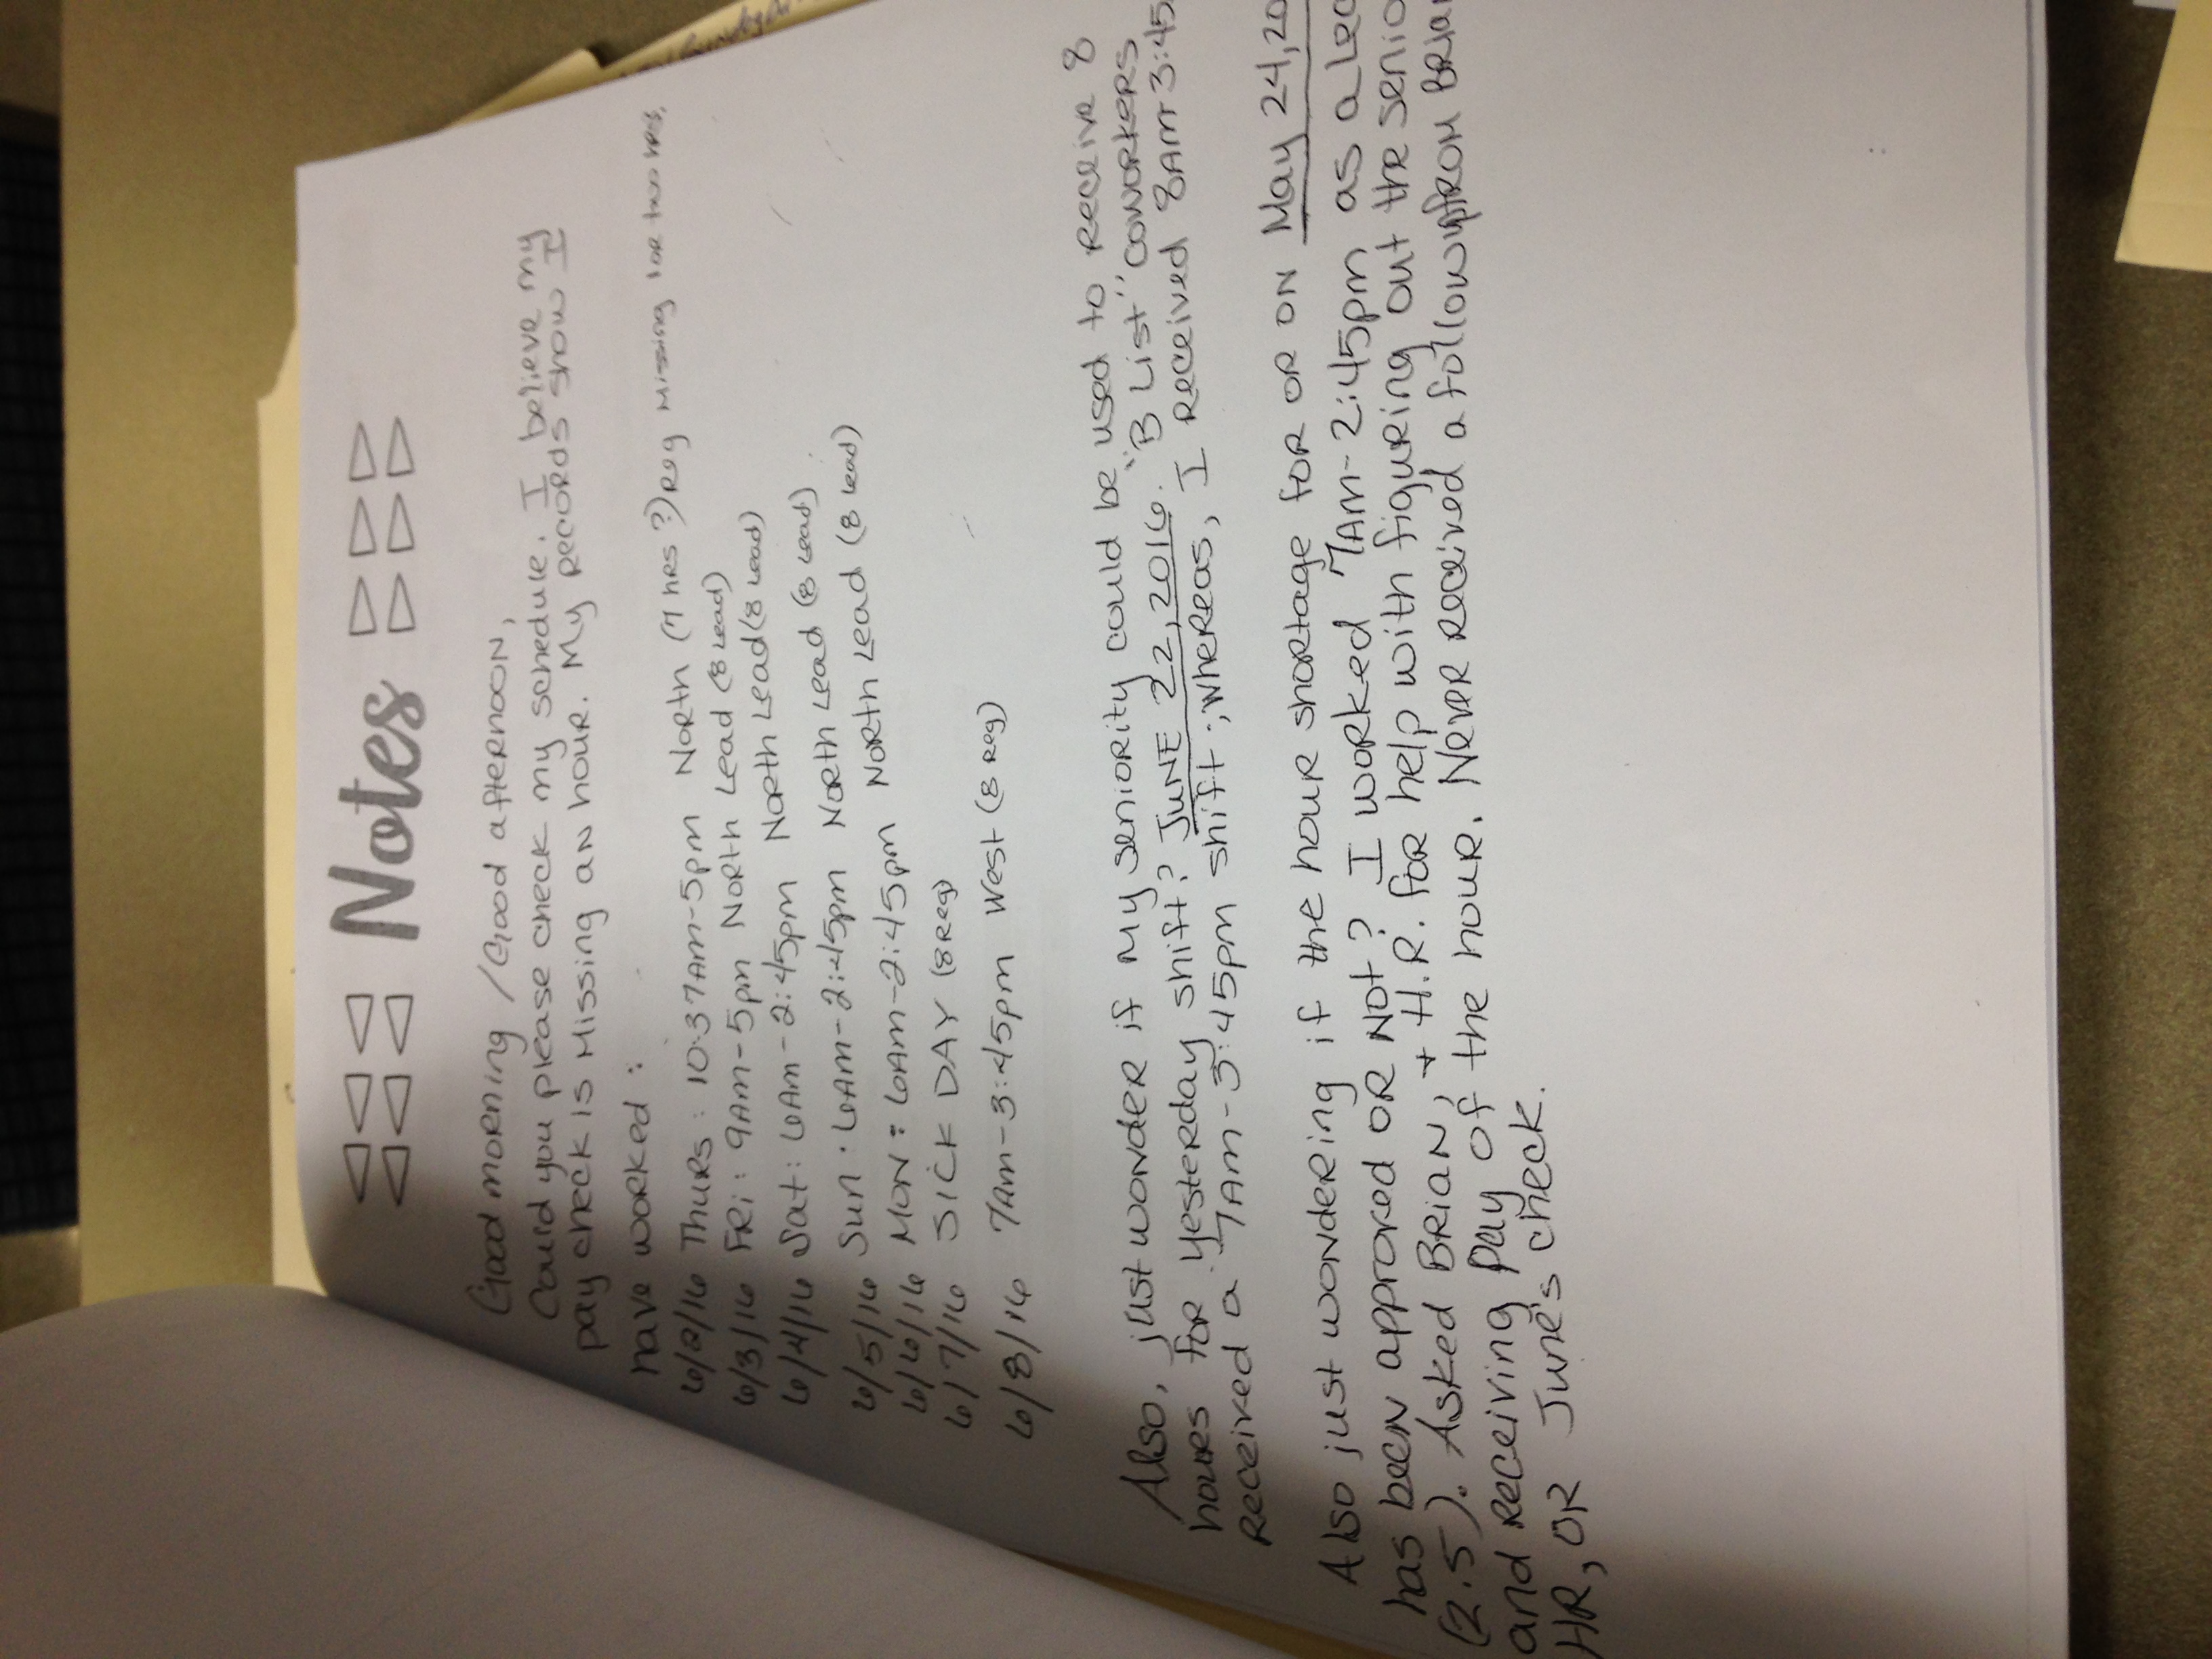 Notes
Good morning / Good afternoon,
Could you please check my schedule. I believe my
pay check is missing an hour. My records show I
have worked :
6/2/16 Thurs: 10:37am-5pm North (7 hrs ?) Reg Missing 1 or two hrs.
6/3/16 Fri: 9am-5pm North Lead (8 Lead)
6/4/16 Sat: 6am-2:45pm North Lead (8 Lead)
6/5/16 Sun: 6am-2:45pm North Lead (8 Lead)
6/6/16 Mon: 6am-2:45pm North Lead (8 Lead)
6/7/16 SICK DAY (8 Reg)
6/8/16 7am-3:45pm West (8 Reg)
Also, just wonder if my seniority could be used to receive 8
hours for yesterday shift? June 22, 2016. "B List" coworkers
received a 7am-3:45pm shift; whereas, I received 8am-3:45
Also just wondering if the hour shortage for or on May 24, 20
has been approved or not? I worked 7am-2:45pm as a Lea
(2.5). Asked Brian, + H.R. for help with figuring out the senio
and receiving pay of the hour. Never received a followup from Brian
HR, or June's check.